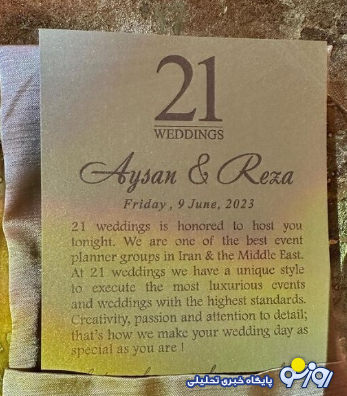 21
WEDDINGS
Aysan & Reza
Friday , 9 June, 2023
21 weddings is honored to host you
tonight. We are one of the best event
planner groups in Iran & the Middle East.
At 21 weddings we have a unique style
to execute the most luxurious events
and weddings with the highest standards.
Creativity, passion and attention to detail;
that's how we make your wedding day as
special as you are !
روز نو
پایگاه خبری تحلیلی